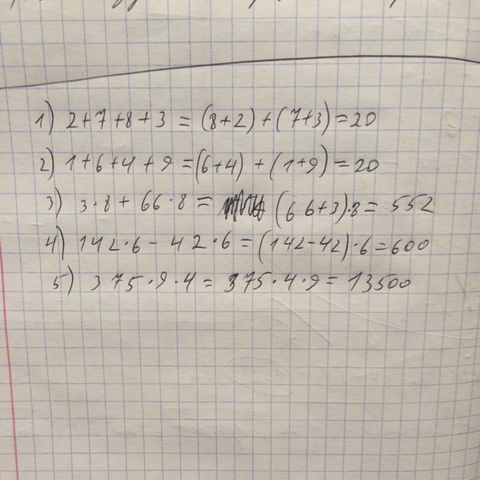 1) 2+7+8+3 = (8+2)+(7+3)=20
2) 1+6+4+9=(6+4)+(1+9)=20
3) 3·8+66·8= (66+3)·8= 552
4) 142·6-42·6=(142-42)·6=600
5) 375·9·4= 375·4·9=13500